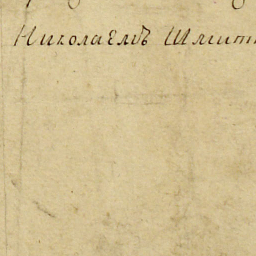 Николаемъ Шмит